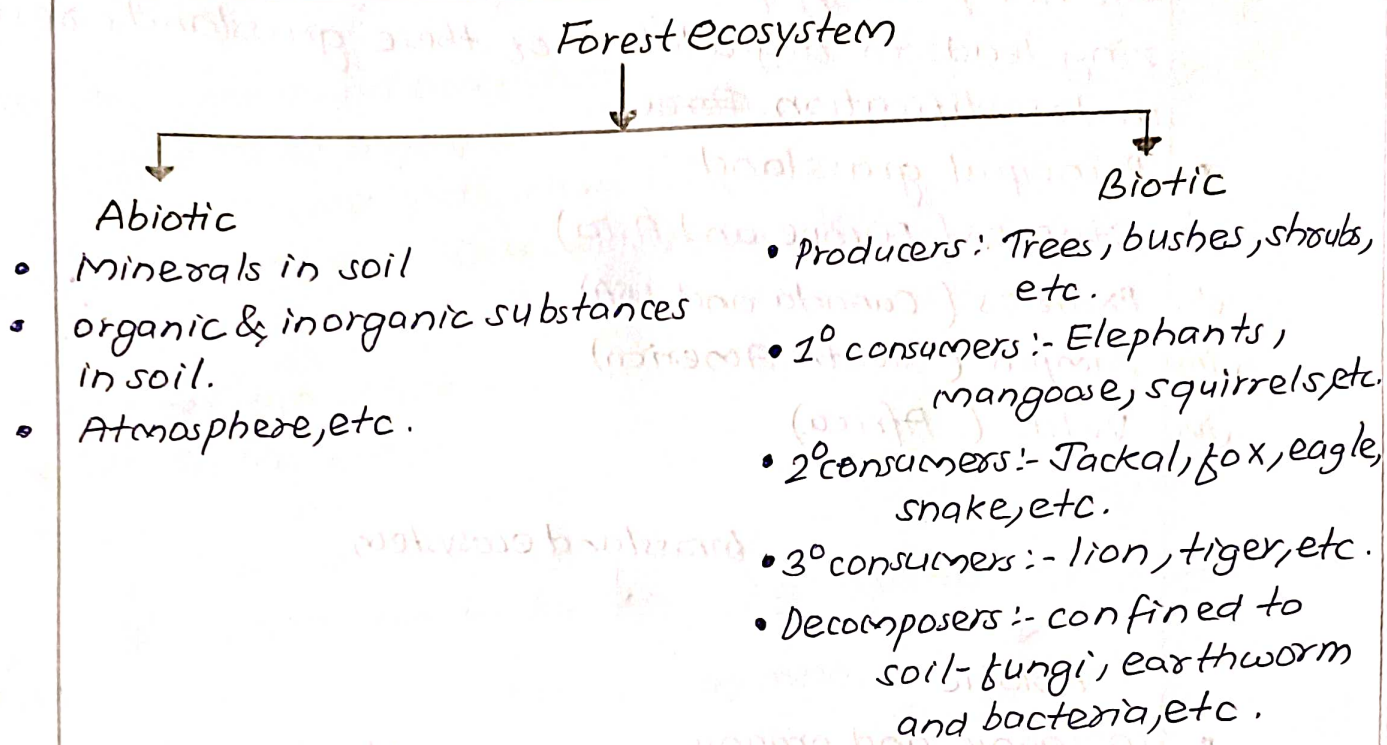 Forest ecosystem
Abiotic
• Minerals in soil
• organic & inorganic substances
in soil.
• Atmosphere, etc.
Biotic
• Producers: Trees, bushes, shrubs,
etc.
• 1° consumers :- Elephants,
mangoose, squirrels, etc.
• 2° consumers :- Jackal, fox, eagle,
snake, etc.
• 3° consumers :- lion, tiger, etc.
• Decomposers :- confined to
soil - fungi, earthworm
and bacteria, etc.